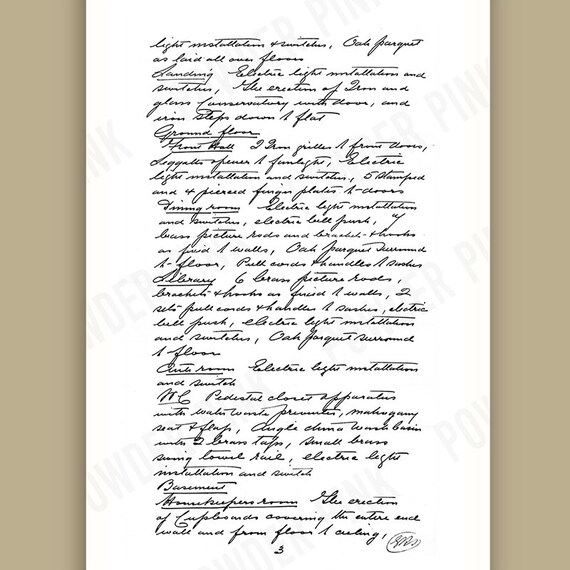 light installation & switches, Oak parquet
as laid all over floors
Landing Electric light installation and
switches, The erection of Iron and
glass Conservatory with door, and
iron steps down to flat
Ground floor
Front Hall 2 Iron grilles to front doors,
Leggatts opener to fanlight, Electric
light installation and switches, 5 stamped
and 4 pierced finger plates to doors
Dining room Electric light installation
and switches, electric bell push, 7
brass picture rods and brackets & hooks
as fixed to walls, Oak parquet surround
to floor, Pull cords & handles to sashes
Library 6 brass picture rods,
brackets & hooks as fixed to walls, 2
sets pull cords & handles to sashes, electric
bell push, electric light installation
and switches, Oak parquet surround
to floor
Ante room Electric light installation
and switch
WC Pedestal closet apparatus
with water waste preventer, mahogany
seat & flap, Angle china wash basin
with 2 brass taps, small brass
swing towel rail, electric light
installation and switch
Basement
Housekeepers room The erection
of Cupboards covering the entire end
wall and from floor to ceiling,
3
POWDER PINK